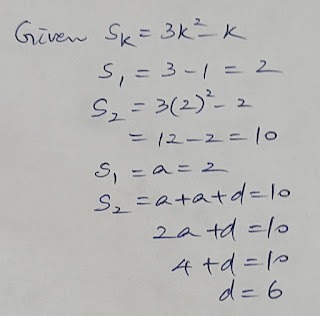 Given Sk = 3k² - k
S₁ = 3 - 1 = 2
S₂ = 3(2)² - 2
= 12 - 2 = 10
S₁ = a = 2
S₂ = a + a + d = 10
2a + d = 10
4 + d = 10
d = 6